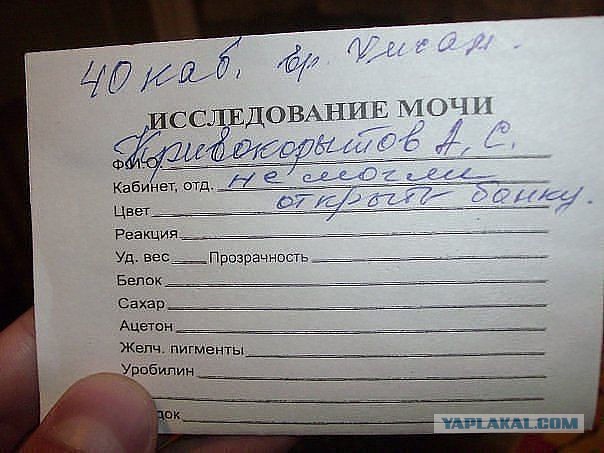 40 каб. вр.
ИССЛЕДОВАНИЕ МОЧИ
Ф.И.О. Кривокорытов А. С.
Кабинет, отд. не могли
Цвет открыть банку.
Реакция
Уд. вес Прозрачность
Белок
Сахар
Ацетон
Желч. пигменты
Уробилин
док
YAPLAKAL.COM